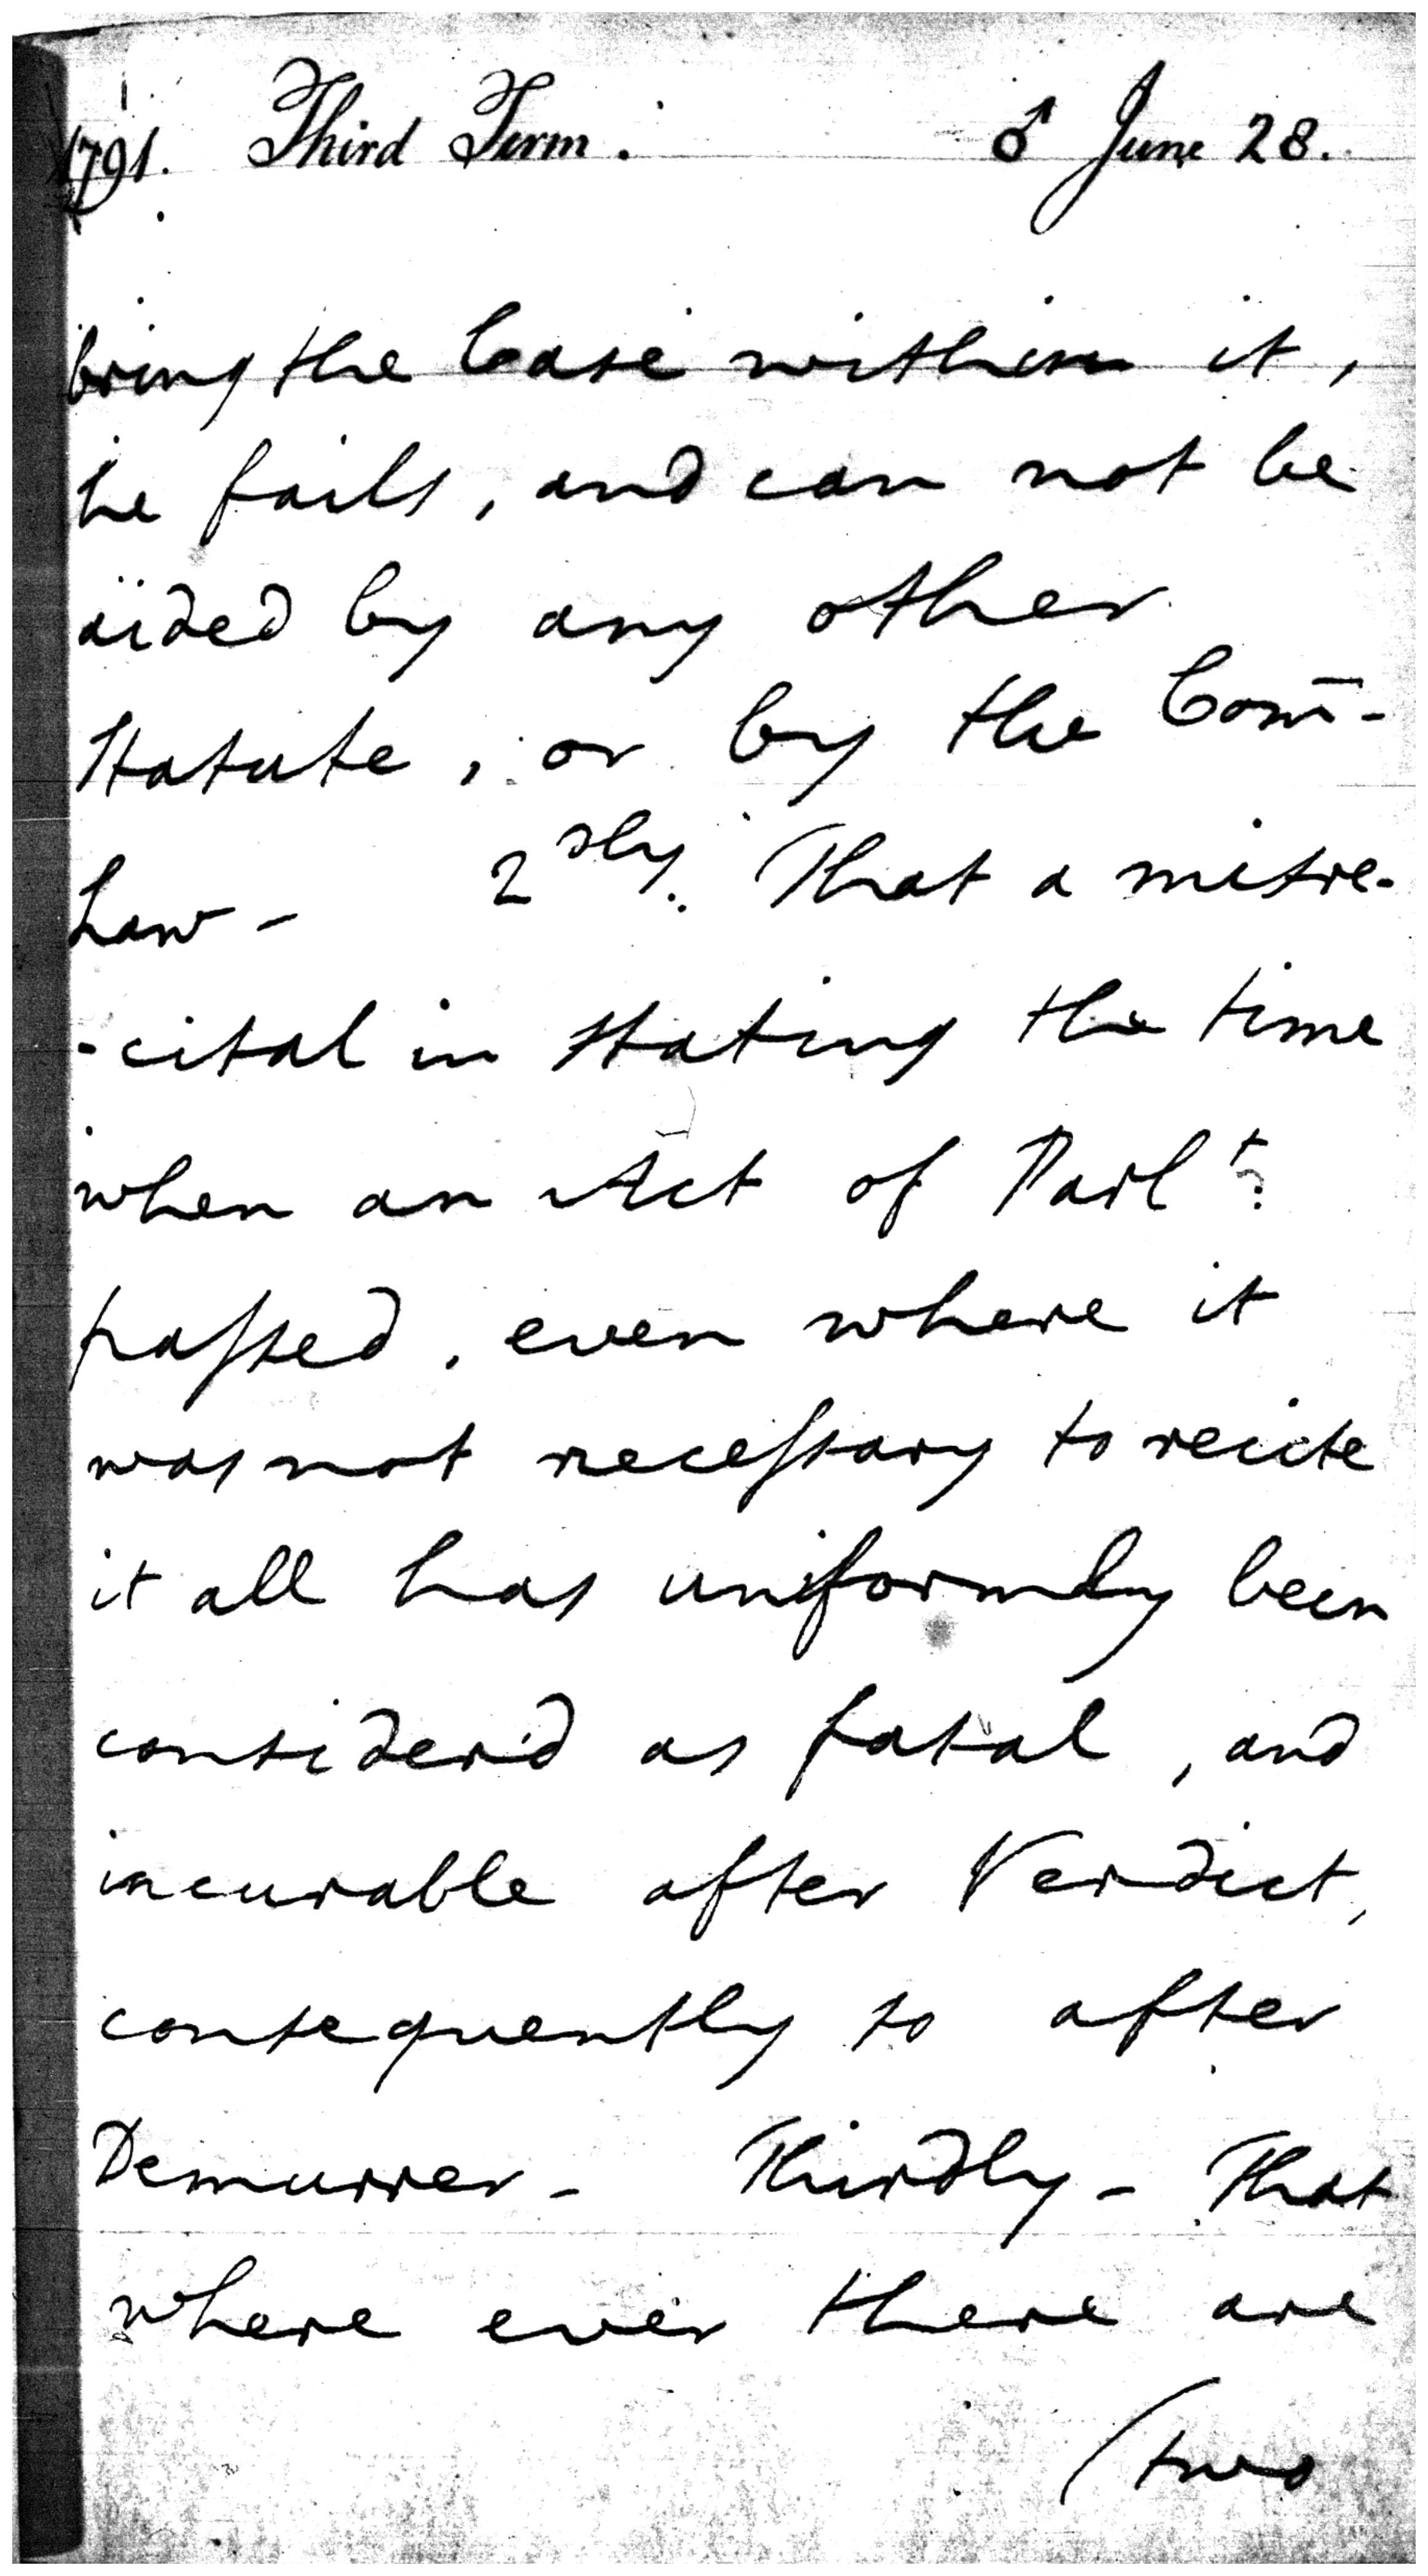 1791. Third Term. ♂ June 28.
bring the Case within it,
he fails, and can not be
aided by any other
Statute, or by the Com̄-
Law - 2dly. That a misre-
-cital in stating the time
when an Act of Parlt.
passed, even where it
was not necessary to recite
it all has uniformly been
consider'd as fatal, and
incurable after Verdict,
consequently so after
Demurrer - Thirdly - That
where ever there are
(two